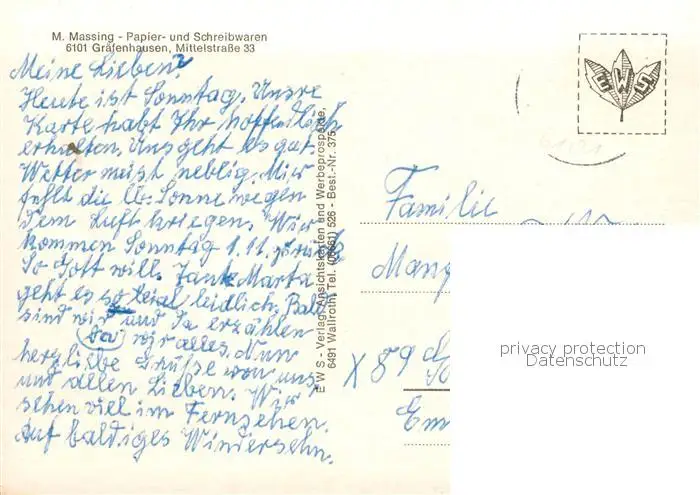 M. Massing - Papier- und Schreibwaren
6101 Gräfenhausen, Mittelstraße 33
Meine Lieben?
Heute ist Sonntag. Unsre
Karte habt Ihr hoffentlich
erhalten. Uns geht es gut.
Wetter meist neblig. Mir
fehlt die lb. Sonne wegen
dem Luft kriegen. Wir
kommen Sonntag 1.11. zurück
So Gott will. Tante Marta
geht es so leidlich. Bald
sind wir und Da erzählen
wir alles. Nun
herzliebe Grüße von uns
und allen Lieben. Wir
sehen viel im Fernsehen.
Auf baldiges Wiedersehn.
E W S - Verlag, Ansichtskarten und Werbeprospekte,
6491 Wallroth, Tel. (06661) 526 - Best.-Nr. 375
EWS
Familie
Mang
X 89
Em
privacy protection
Datenschutz